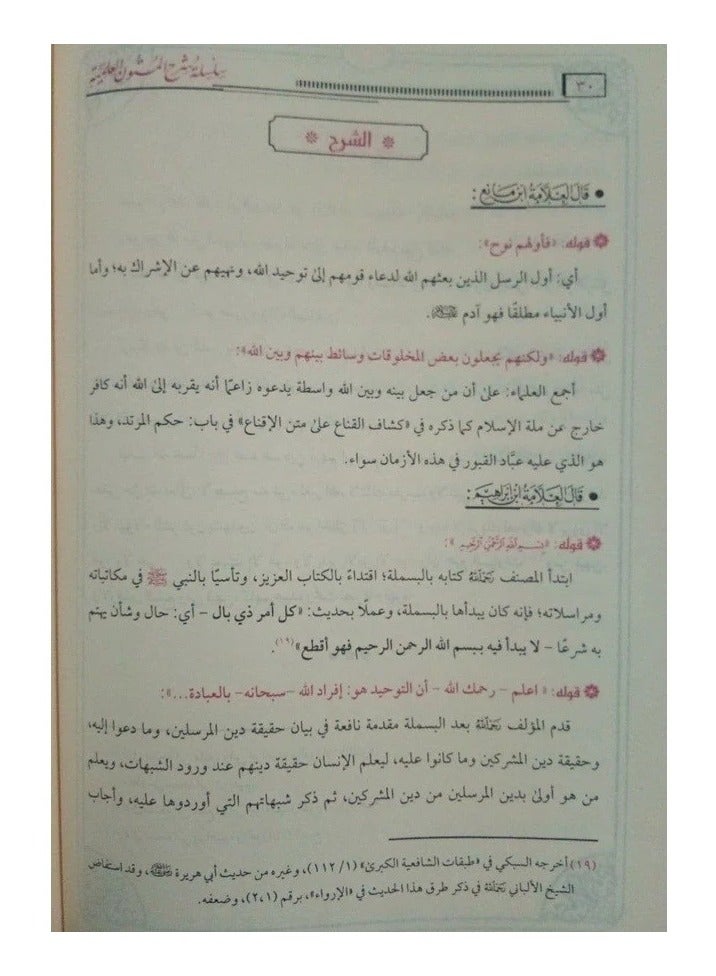 ٣٠
سلسلة شرح المتون العلمية
❁ الشرح ❁
• قال العلامة ابن مانع:
❁ قوله: «فأولهم نوح»:
أي: أول الرسل الذين بعثهم الله لدعاء قومهم إلىٰ توحيد الله، ونهيهم عن الإشراك به؛ وأما
أول الأنبياء مطلقًا فهو آدم ﵇.
❁ قوله: «ولكنهم يجعلون بعض المخلوقات وسائط بينهم وبين الله»:
أجمع العلماء: علىٰ أن من جعل بينه وبين الله واسطة يدعوه زاعمًا أنه يقربه إلىٰ الله أنه كافر
خارج عن ملة الإسلام كما ذكره في «كشاف القناع علىٰ متن الإقناع» في باب: حكم المرتد، وهذا
هو الذي عليه عبَّاد القبور في هذه الأزمان سواء.
• قال العلامة ابن إبراهيم:
❁ قوله: «بسم الله الرحمن الرحيم»:
ابتدأ المصنف ﵀ كتابه بالبسملة؛ اقتداءً بالكتاب العزيز، وتأسيًا بالنبي ﷺ في مكاتباته
ومراسلاته؛ فإنه كان يبدأها بالبسملة، وعملًا بحديث: «كل أمر ذي بال - أي: حال وشأن يهتم
به شرعًا - لا يبدأ فيه ببسم الله الرحمن الرحيم فهو أقطع»(١٩).
❁ قوله: « اعلم - رحمك الله - أن التوحيد هو: إفراد الله -سبحانه- بالعبادة...»:
قدم المؤلف ﵀ بعد البسملة مقدمة نافعة في بيان حقيقة دين المرسلين، وما دعوا إليه،
وحقيقة دين المشركين وما كانوا عليه، ليعلم الإنسان حقيقة دينهم عند ورود الشبهات، ويعلم
من هو أولىٰ بدين المرسلين من دين المشركين، ثم ذكر شبهاتهم التي أوردوها عليه، وأجاب
(١٩) أخرجه السبكي في «طبقات الشافعية الكبرىٰ» (١/ ١١٢)، وغيره من حديث أبي هريرة ﵁، وقد استفاض
الشيخ الألباني ﵀ في ذكر طرق هذا الحديث في «الإرواء»، برقم (٢،١)، وضعفه.